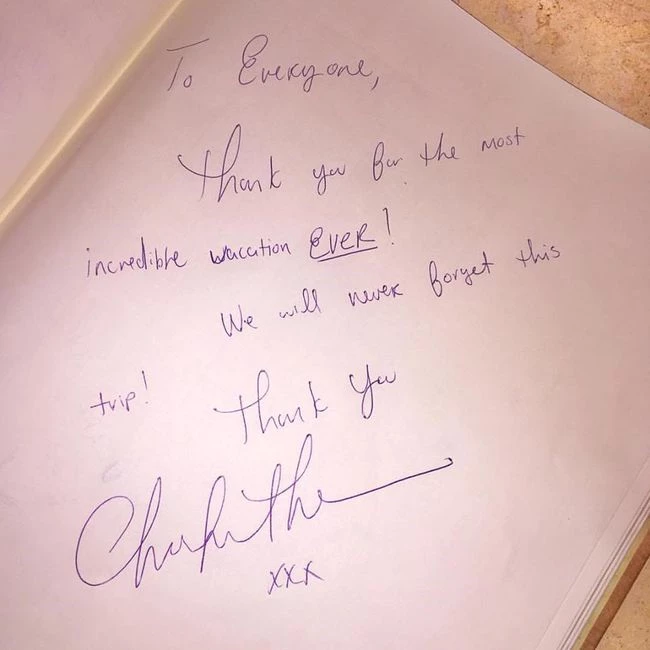 To Everyone,
Thank you for the most
incredible vacation EVER!
We will never forget this
trip!
Thank You
xxx